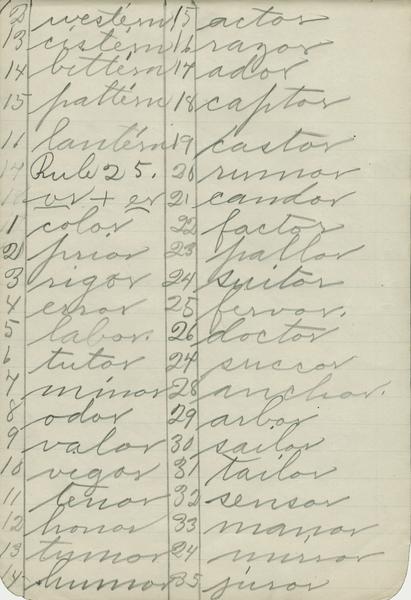 12 western
13 cistern
14 bittern
15 pattern
16 lantern
Rule 25.
or + er
1 color
2 prior
3 rigor
4 error
5 labor.
6 tutor
7 minor
8 odor
9 valor
10 vigor
11 tenor
12 honor
13 tumor
14 humor
15 actor
16 razor
17 ador
18 captor
19 castor
20 rumor
21 candor
22 factor
23 pallor
24 suitor
25 fervor.
26 doctor
24 succor
28 anchor.
29 arbor
30 sailor
31 tailor
32 sensor
33 manor
24 mirror
35 juror